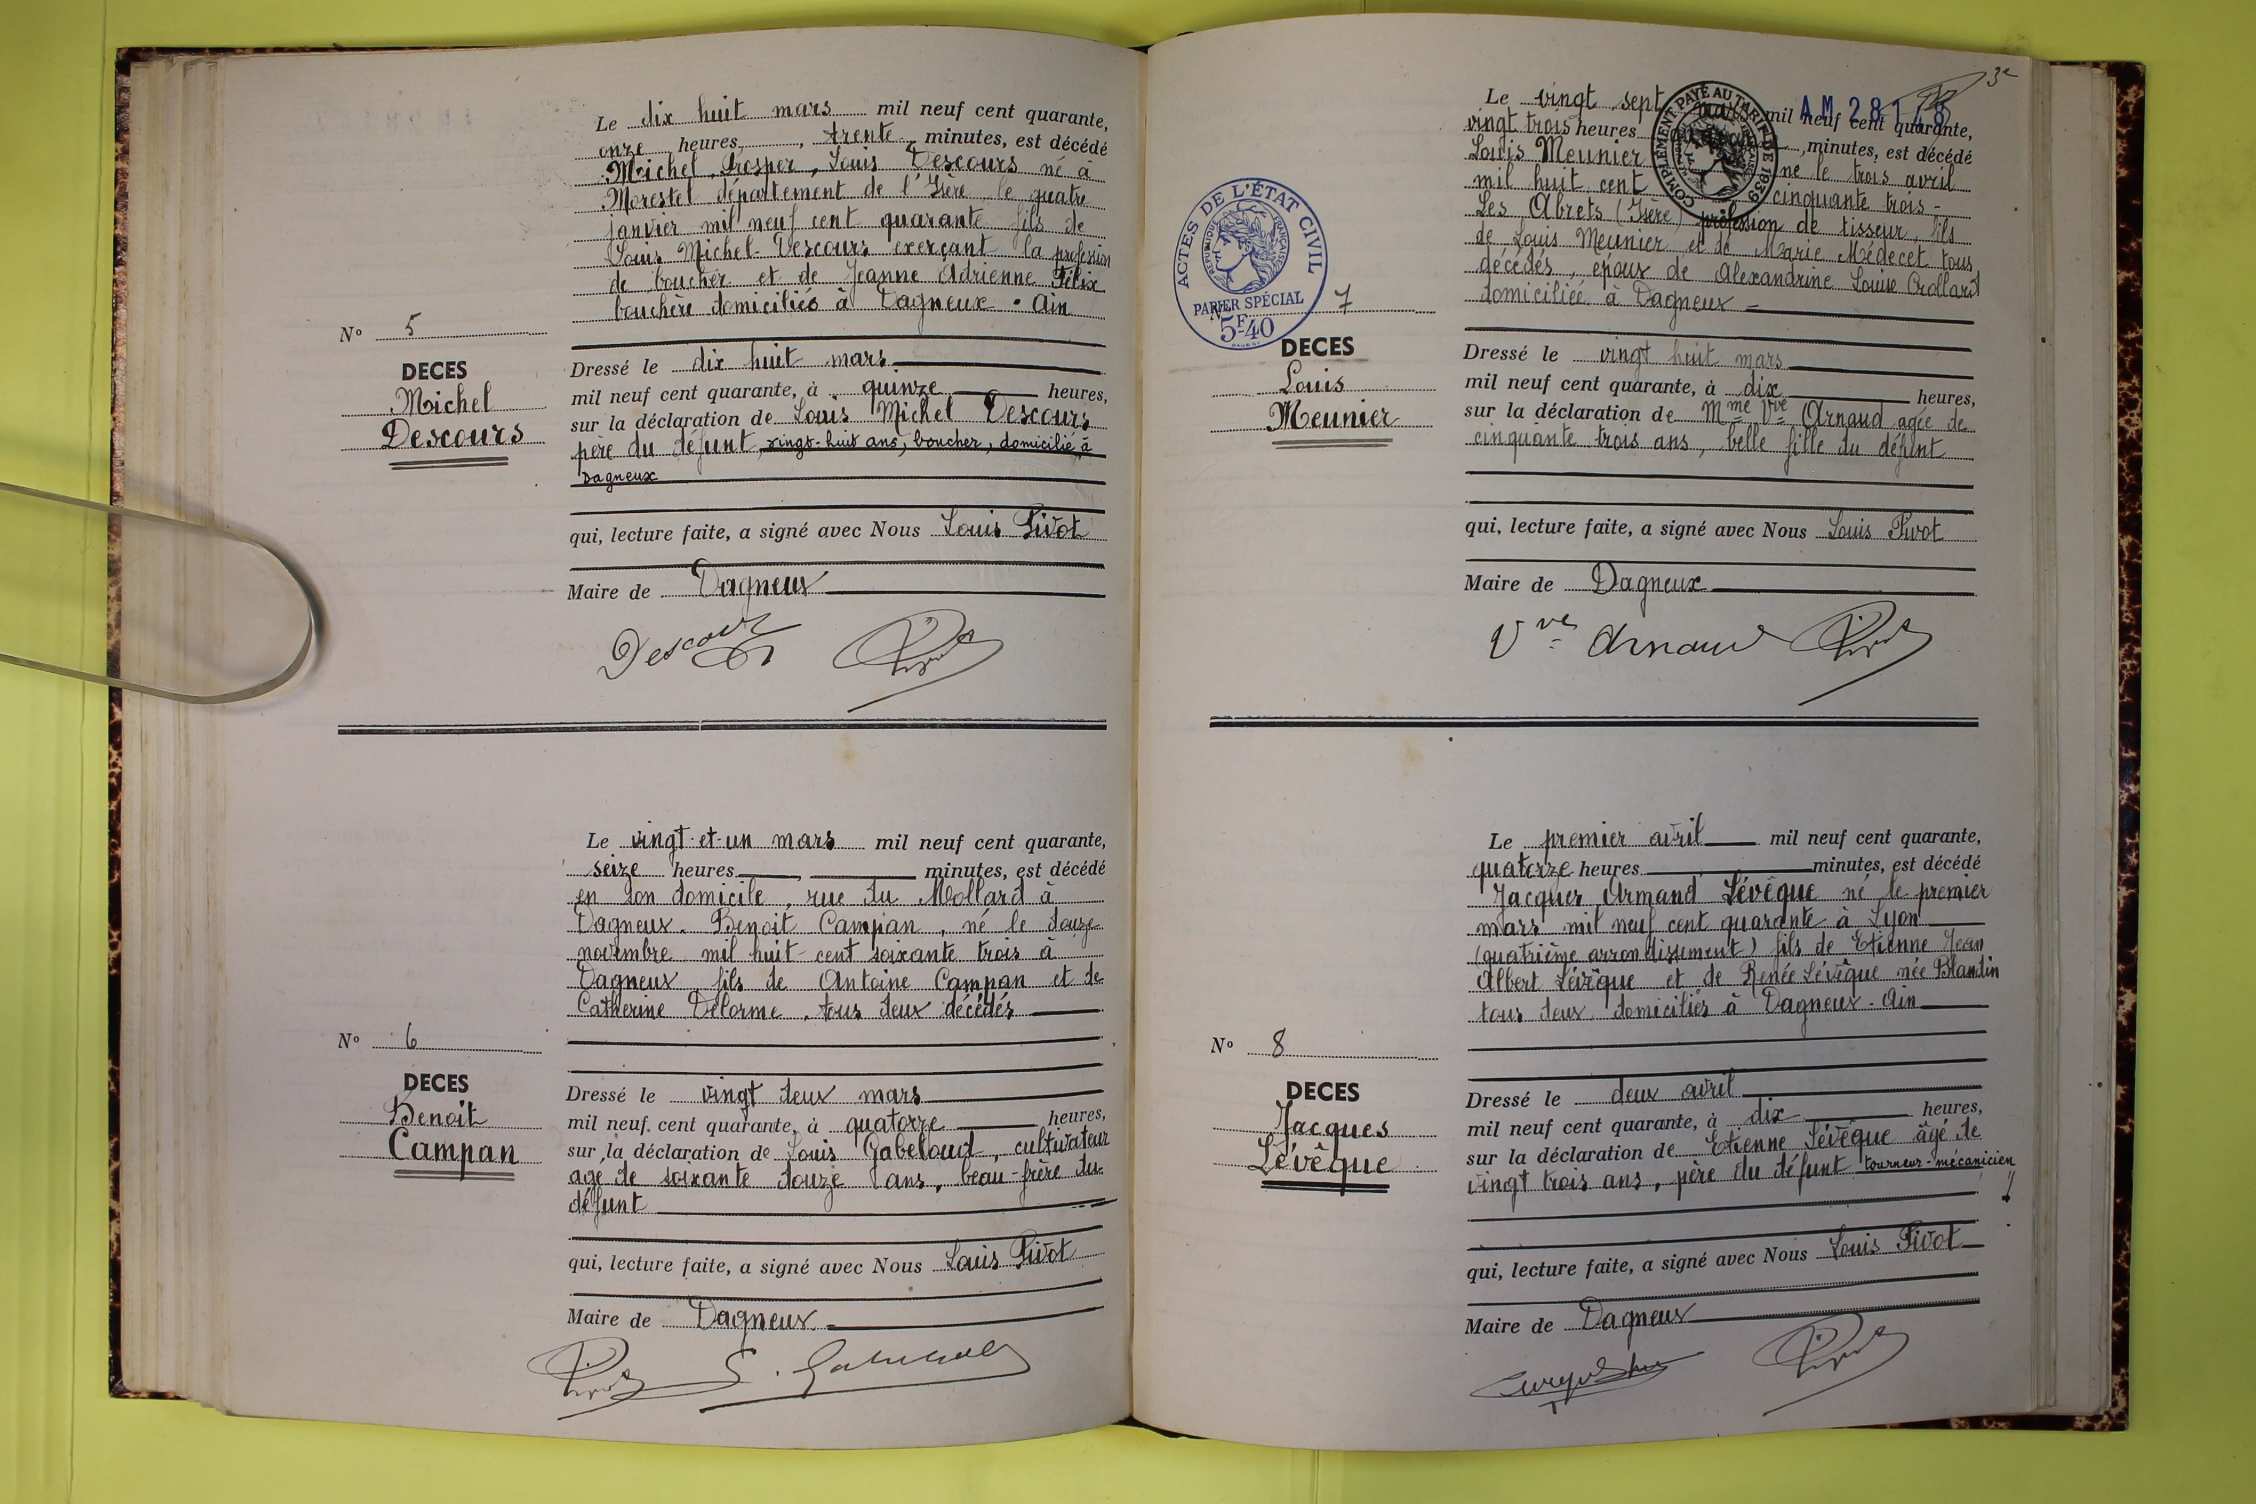 Le dix huit mars mil neuf cent quarante,
onze heures, trente minutes, est décédé
Michel, Prosper, Louis Descours né à
Morestel département de l'Isère le quatre
janvier mil neuf cent quarante fils de
Louis Michel Descours exerçant la profession
de boucher et de Jeanne Adrienne Félix
bouchère domiciliés à Dagneux. Ain
N° 5
DECES
Michel
Descours
Dressé le dix huit mars
mil neuf cent quarante, à quinze heures,
sur la déclaration de Louis Michel Descours
père du défunt, vingt-huit ans, boucher, domicilié à
Dagneux
qui, lecture faite, a signé avec Nous Louis Pivot
Maire de Dagneux
Descours Pivot
Le vingt-et-un mars mil neuf cent quarante,
seize heures, minutes, est décédé
en son domicile, rue du Mollard à
Dagneux. Benoit Campan, né le douze
novembre mil huit-cent soixante trois à
Dagneux fils de Antoine Campan et de
Catherine Delorme, tous deux décédés
N° 6
DECES
Benoit
Campan
Dressé le vingt deux mars
mil neuf cent quarante, à quatorze heures,
sur la déclaration de Louis Gabeloud, cultivateur
agé de soixante douze ans, beau-frère du
défunt
qui, lecture faite, a signé avec Nous Louis Pivot
Maire de Dagneux
Pivot
3e
AM 28
Le vingt sept mars mil neuf cent quarante,
vingt trois heures, minutes, est décédé
Louis Meunier né le trois avril
mil huit cent cinquante trois -
Les Abrets (Isère) profession de tisseur, fils
de Louis Meunier et de Marie Médecet tous
décédés, époux de Alexandrine Louise Crollard
domiciliée à Dagneux
COMPLÉMENT PAYÉ AU TARIF DE 1939
ACTES DE L'ÉTAT CIVIL
RÉPUBLIQUE FRANÇAISE
PAPIER SPÉCIAL
5F40
N° 7
DECES
Louis
Meunier
Dressé le vingt huit mars
mil neuf cent quarante, à dix heures,
sur la déclaration de Mme Vve Arnaud agée de
cinquante trois ans, belle fille du défunt
qui, lecture faite, a signé avec Nous Louis Pivot
Maire de Dagneux
Vve Arnaud Pivot
Le premier avril mil neuf cent quarante,
quatorze heures, minutes, est décédé
Jacques Armand Lévêque né le premier
mars mil neuf cent quarante à Lyon
(quatrième arrondissement) fils de Etienne Jean
Albert Lévêque et de Renée Lévêque née Blandin
tous deux domiciliés à Dagneux. Ain
N° 8
DECES
Jacques
Lévêque
Dressé le deux avril
mil neuf cent quarante, à dix heures,
sur la déclaration de Etienne Lévêque âgé de
vingt trois ans, père du défunt tourneur-mécanicien
qui, lecture faite, a signé avec Nous Louis Pivot
Maire de Dagneux
Pivot